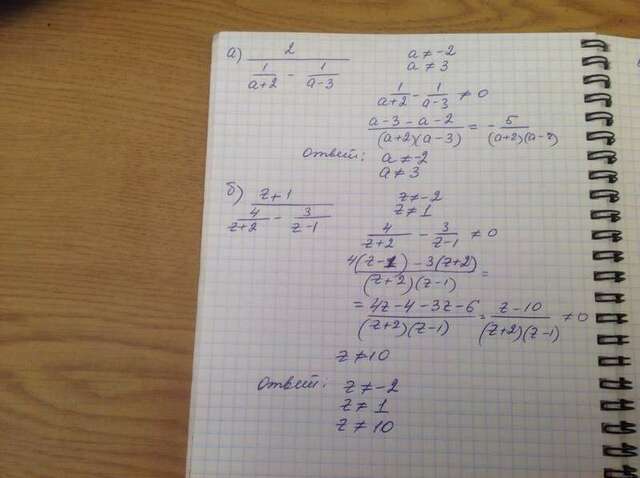 а) 2 / (1/(a+2) - 1/(a-3)) a ≠ -2
a ≠ 3
1/(a+2) - 1/(a-3) ≠ 0
(a-3-a-2)/((a+2)(a-3)) = - 5/((a+2)(a-3))
ответ: a ≠ -2
a ≠ 3
б) (z+1) / (4/(z+2) - 3/(z-1)) z ≠ -2
z ≠ 1
4/(z+2) - 3/(z-1) ≠ 0
(4(z-1) - 3(z+2))/((z+2)(z-1)) =
= (4z-4-3z-6)/((z+2)(z-1)) = (z-10)/((z+2)(z-1)) ≠ 0
z ≠ 10
ответ: z ≠ -2
z ≠ 1
z ≠ 10